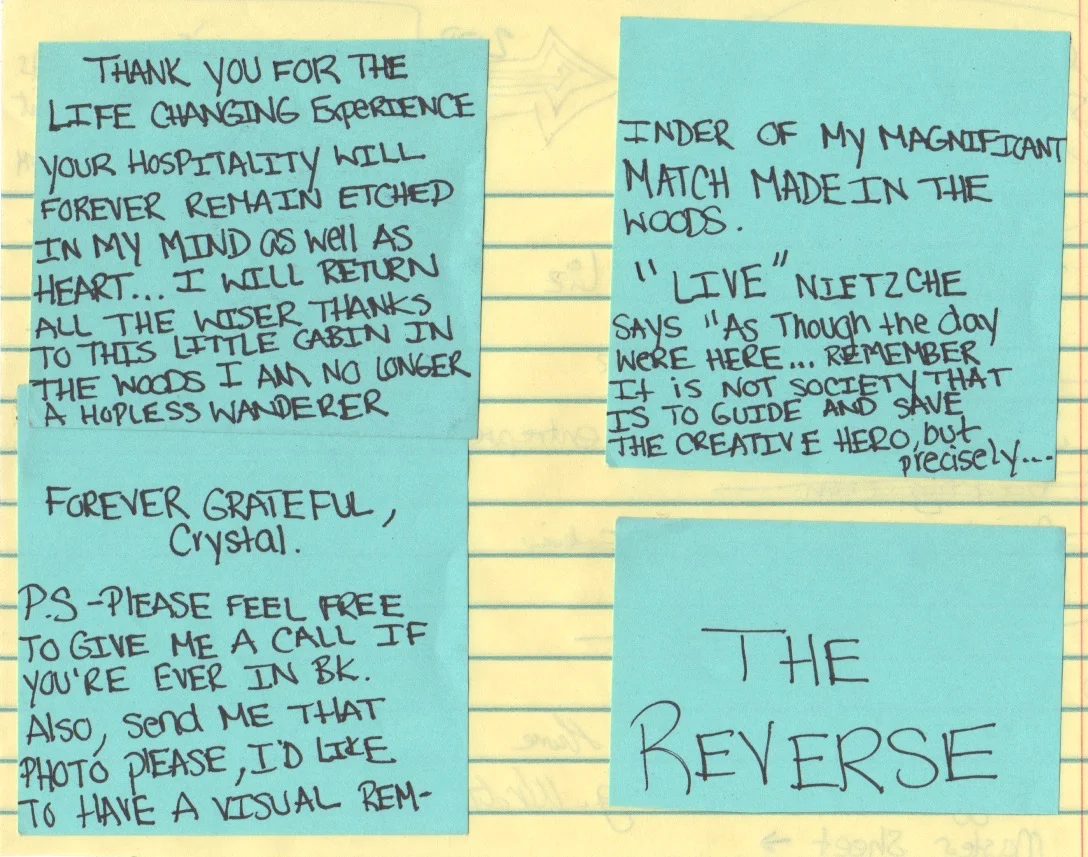 THANK YOU FOR THE
LIFE CHANGING ExpeRIENCE
YOUR HOSPITALITY WILL
FOREVER REMAIN ETCHED
IN MY MIND as well AS
HEART... I WILL RETURN
ALL THE WISER THANKS
TO THIS LITTLE CABIN IN
THE WOODS I AM NO LONGER
A HOPLESS WANDERER
FOREVER GRATEFUL,
Crystal.
P.S -PLEASE FEEL FREE
TO GIVE ME A CALL IF
YOU'RE EVER IN BK.
Also, send ME THAT
PHOTO PLEASE, I'D LIKE
TO HAVE A VISUAL REM-
INDER OF MY MAGNIFICANT
MATCH MADE IN THE
WOODS.
"LIVE" NIETZCHE
SAYS "As Though the day
WERE HERE... REMEMBER
It is NOT SOCIETY THAT
IS TO GUIDE AND SAVE
THE CREATIVE HERO, but
precisely...
THE
REVERSE